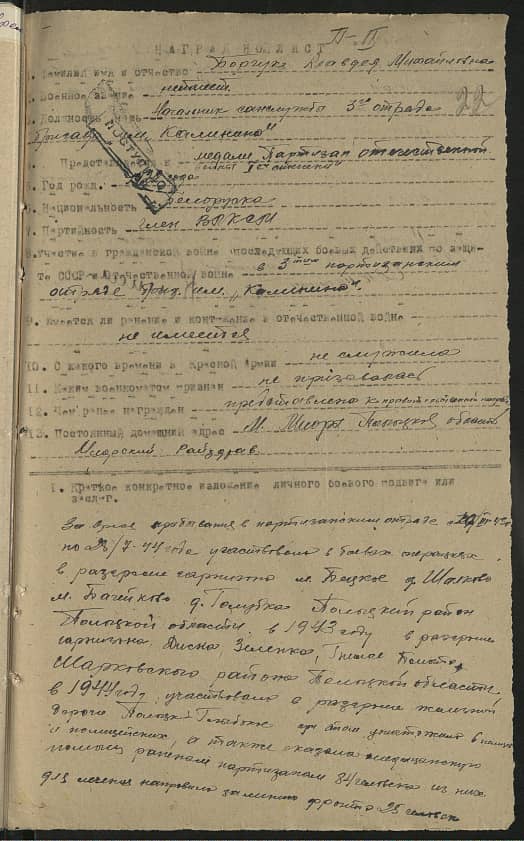 НАГРАДНОЙ ЛИСТ
22
1. Фамилия имя и отчество Клавдея Михайловна
2. Военное звание
3. Должность часть Начальник санслужбы 3го отряда
бригады им. Калинина"
Представляется к медали Партизан отечественной
войны I степени"
5. Год рожд.
6. Национальность белоруска
7. Партийность член ВЛКСМ
8. Участие в гражданской войне последующих боевых действиях по защи-
те СССР и Отечественной войне в 3 партизанском
отряде бриг. им. „Калинина"
9. Имеется ли ранение и контузение в отечественной войне
не имеется
10. С какого времени в Красной Армии не служила
11. Каким военкоматом призван не призвалась
12. Чем ранее награжден представлена к правит.
13. Постоянный домашний адрес М. Миоры Полоцкой области
Миорский Райздрав
I. Краткое конкретное изложение личного боевого подвига или
заслуг.
За время пребывания в партизанском отряде
по 28/7-44 года участвовала в боевых операциях
в разгроме гарнизона м. д.
м. д. Полоцкий район
Полоцкой области в 1943 году в разгроме
гарнизона Дисна,
Шарковского района Полоцкой области,
в 1944 году, участвовала в разгроме железной
дороги Полоцк при этом уничтожила
и полицейских, а также оказала медицинскую
помощь раненым партизанам 84 человека из них
для лечения направила за линию фронта 25 человек